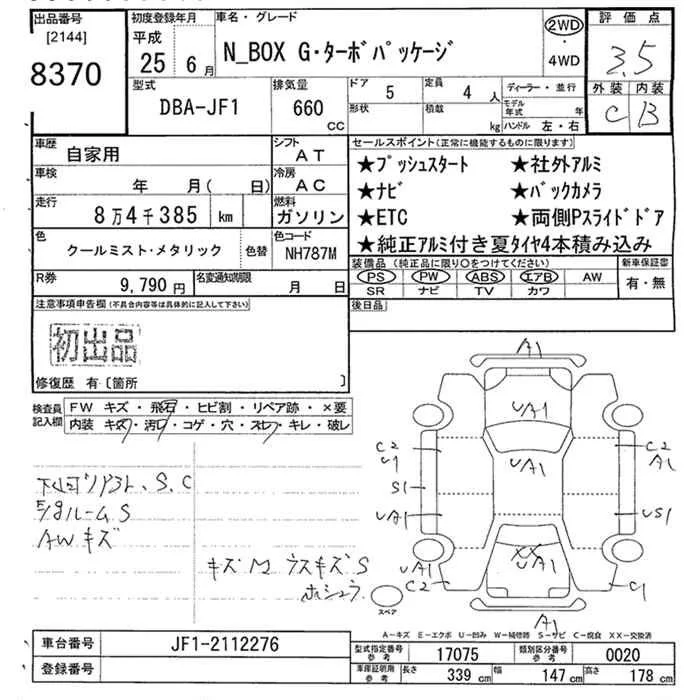 出品番号
[2144]
8370
初度登録年月
平成
25 6月
車名・グレード
N_BOX G・ターボパッケージ
2WD
・
4WD
評価点
3.5
外装 内装
C B
型式
DBA-JF1
排気量
660
CC
ドア
5
定員
4 人
形状
積載
kg
ディーラー・並行
モデル年式 年
ハンドル 左・右
車歴
自家用
シフト
AT
車検
年 月( 日)
冷房
AC
走行
8万4千385 km
燃料
ガソリン
色
クールミスト・メタリック
色替
色コード
NH787M
R券
9,790 円
名変通知期限
月 日
セールスポイント(正常に機能するものに限ります)
★プッシュスタート ★社外アルミ
★ナビ ★バックカメラ
★ETC ★両側Pスライドドア
★純正アルミ付き夏タイヤ4本積み込み
装備品(純正品に限り○をつけてください)
PS PW ABS エアB AW
SR ナビ TV カワ
新車保証書
有・無
後日品
注意事項申告欄(不具合内容等は具体的に記入して下さい)
初出品
修復歴 有〔箇所 〕
検査員記入欄
FW キズ・飛石・ヒビ割・リペア跡・×要
内装 キズ・汚レ・コゲ・穴・スレ・キレ・破レ
S.C
ルームS
AWキズ
キズM ウスキズS
A1
UA1
UA1
XX
UA1
A1
C2
U1
S1
UA1
UA1
C2
C2
A1
US1
C1
スペア
A-キズ E-エクボ U-凹み W-補修跡 S-サビ C-腐食 XX-交換済
車台番号
JF1-2112276
登録番号
型式指定番号
参考
17075
類別区分番号
参考
0020
車庫証明用
参考
長さ 339 cm
幅 147 cm
高さ 178 cm